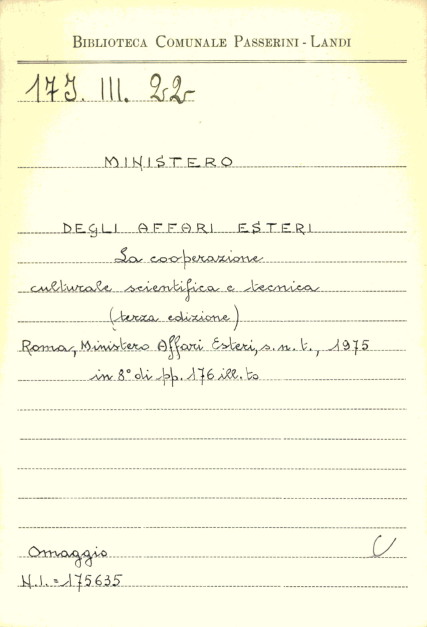 BIBLIOTECA COMUNALE PASSERINI - LANDI
17J. III. 22
MINISTERO
DEGLI AFFARI ESTERI
La cooperazione
culturale scientifica e tecnica
(terza edizione)
Roma, Ministero Affari Esteri, s. n. t., 1975
in 8° di pp. 176 ill.to
Omaggio
N.I. = 175635